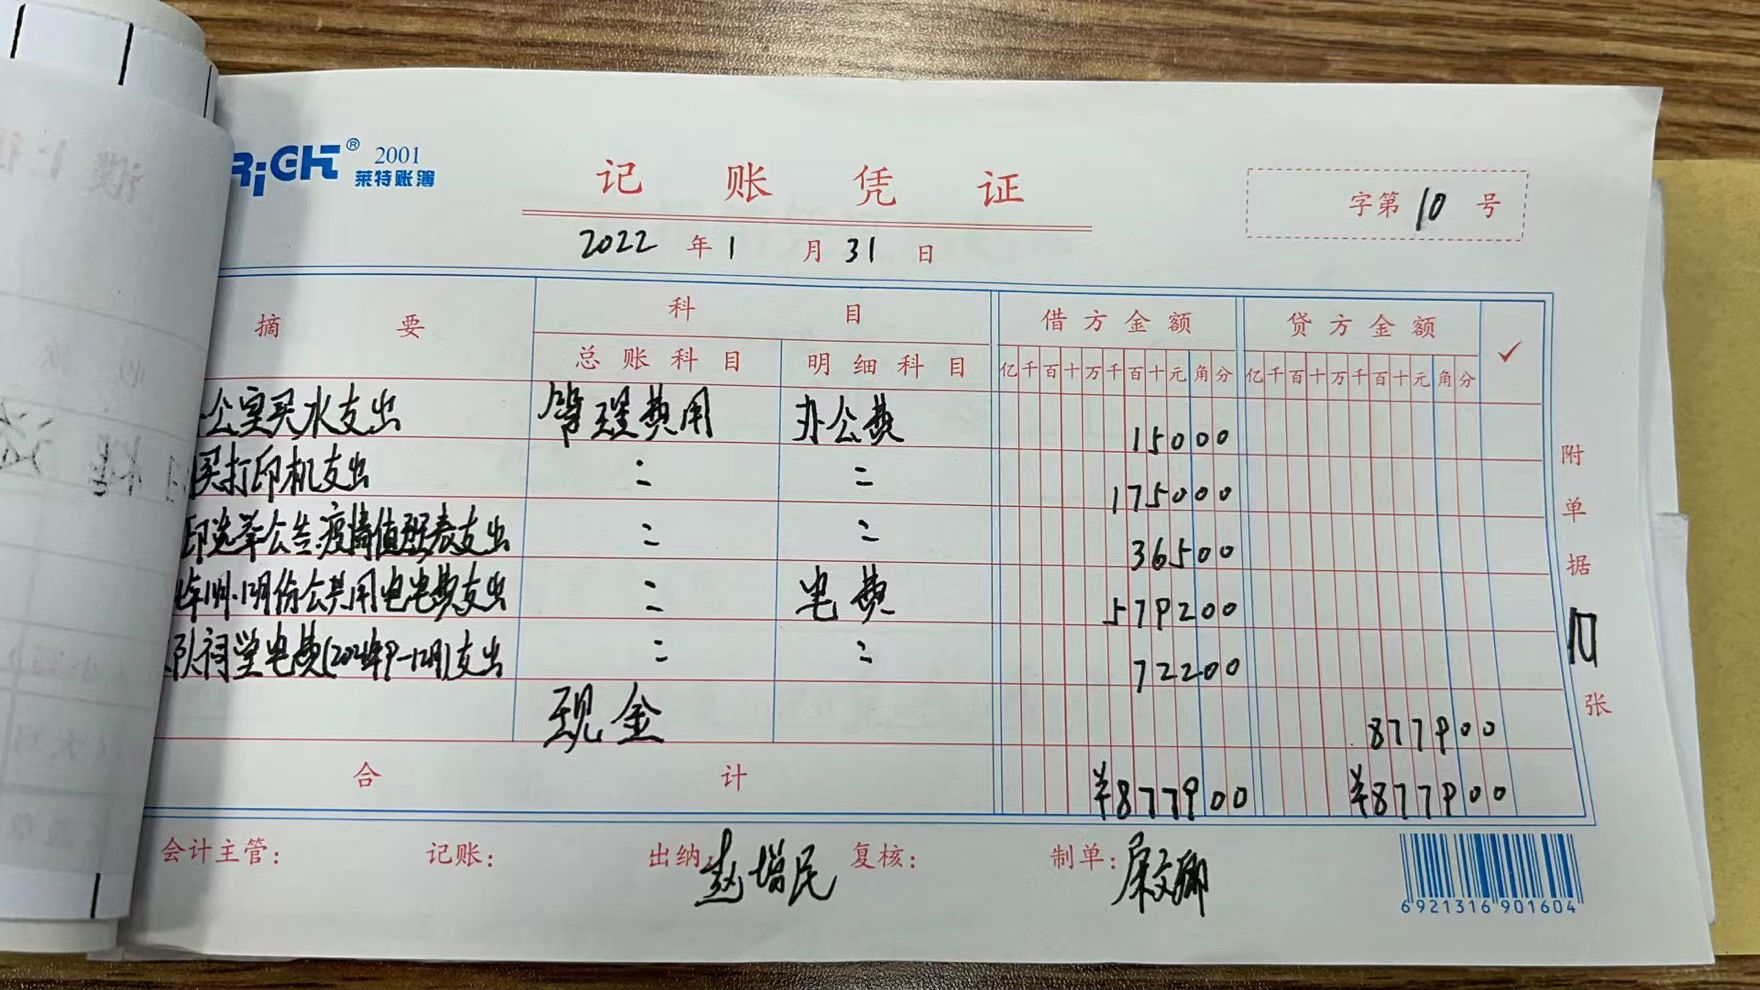 RiGHT® 2001
莱特账簿
记 账 凭 证
字第 10 号
2022 年 1 月 31 日
摘 要 科 目 借方金额 贷方金额 ✓
总账科目 明细科目 亿千百十万千百十元角分 亿千百十万千百十元角分
公室买水支出 管理费用 办公费 15000
买打印机支出 〃 〃 175000
印选举公告.疫情值班表支出 〃 〃 36500
年11月.12月份公共用电电费支出 〃 电费 579200
队祠堂电费(2021年9-12月)支出 〃 〃 72200
现金 877900
合 计 ¥877900 ¥877900
附单据 10 张
会计主管: 记账: 出纳:赵增民 复核: 制单:
6 921316 901604